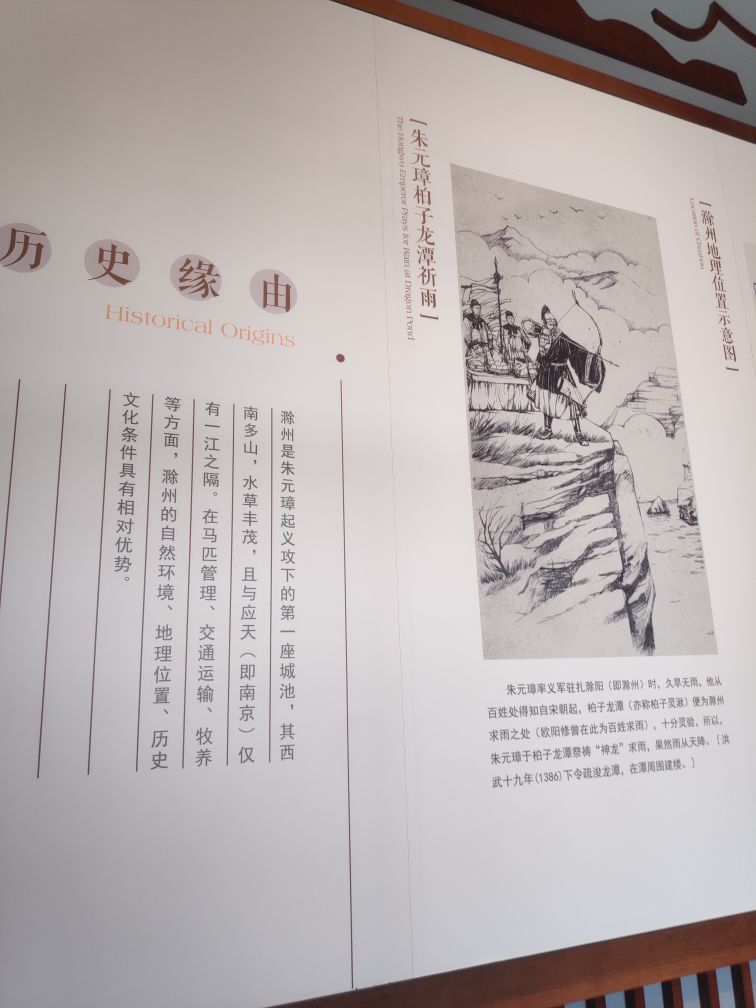 历史缘由
Historical Origins
滁州是朱元璋起义攻下的第一座城池，其西
南多山，水草丰茂，且与应天（即南京）仅
有一江之隔。在马匹管理、交通运输、牧养
等方面，滁州的自然环境、地理位置、历史
文化条件具有相对优势。
[朱元璋柏子龙潭祈雨]
The Hongwu Emperor Prays for Rain at Dragon Pond
朱元璋率义军驻扎滁阳（即滁州）时，久旱无雨，他从
百姓处得知自宋朝起，柏子龙潭（亦称柏子灵湫）便为滁州
求雨之处（欧阳修曾在此为百姓求雨），十分灵验，所以，
朱元璋于柏子龙潭祭祷“神龙”求雨，果然雨从天降。［洪
武十九年(1386)下令疏浚龙潭，在潭周围建楼。］
[滁州地理位置示意图]
Location of Chuzhou